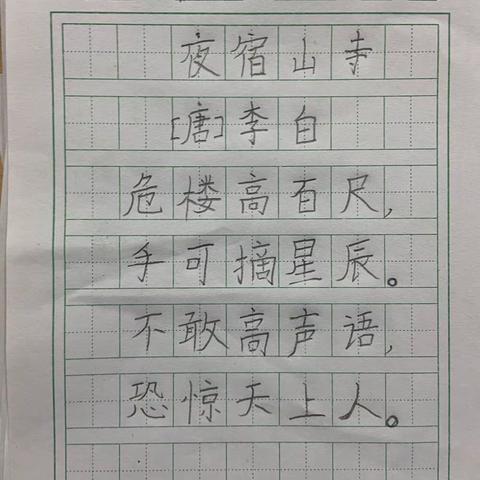 夜宿山寺
[唐]李白
危楼高百尺,
手可摘星辰。
不敢高声语,
恐惊天上人。